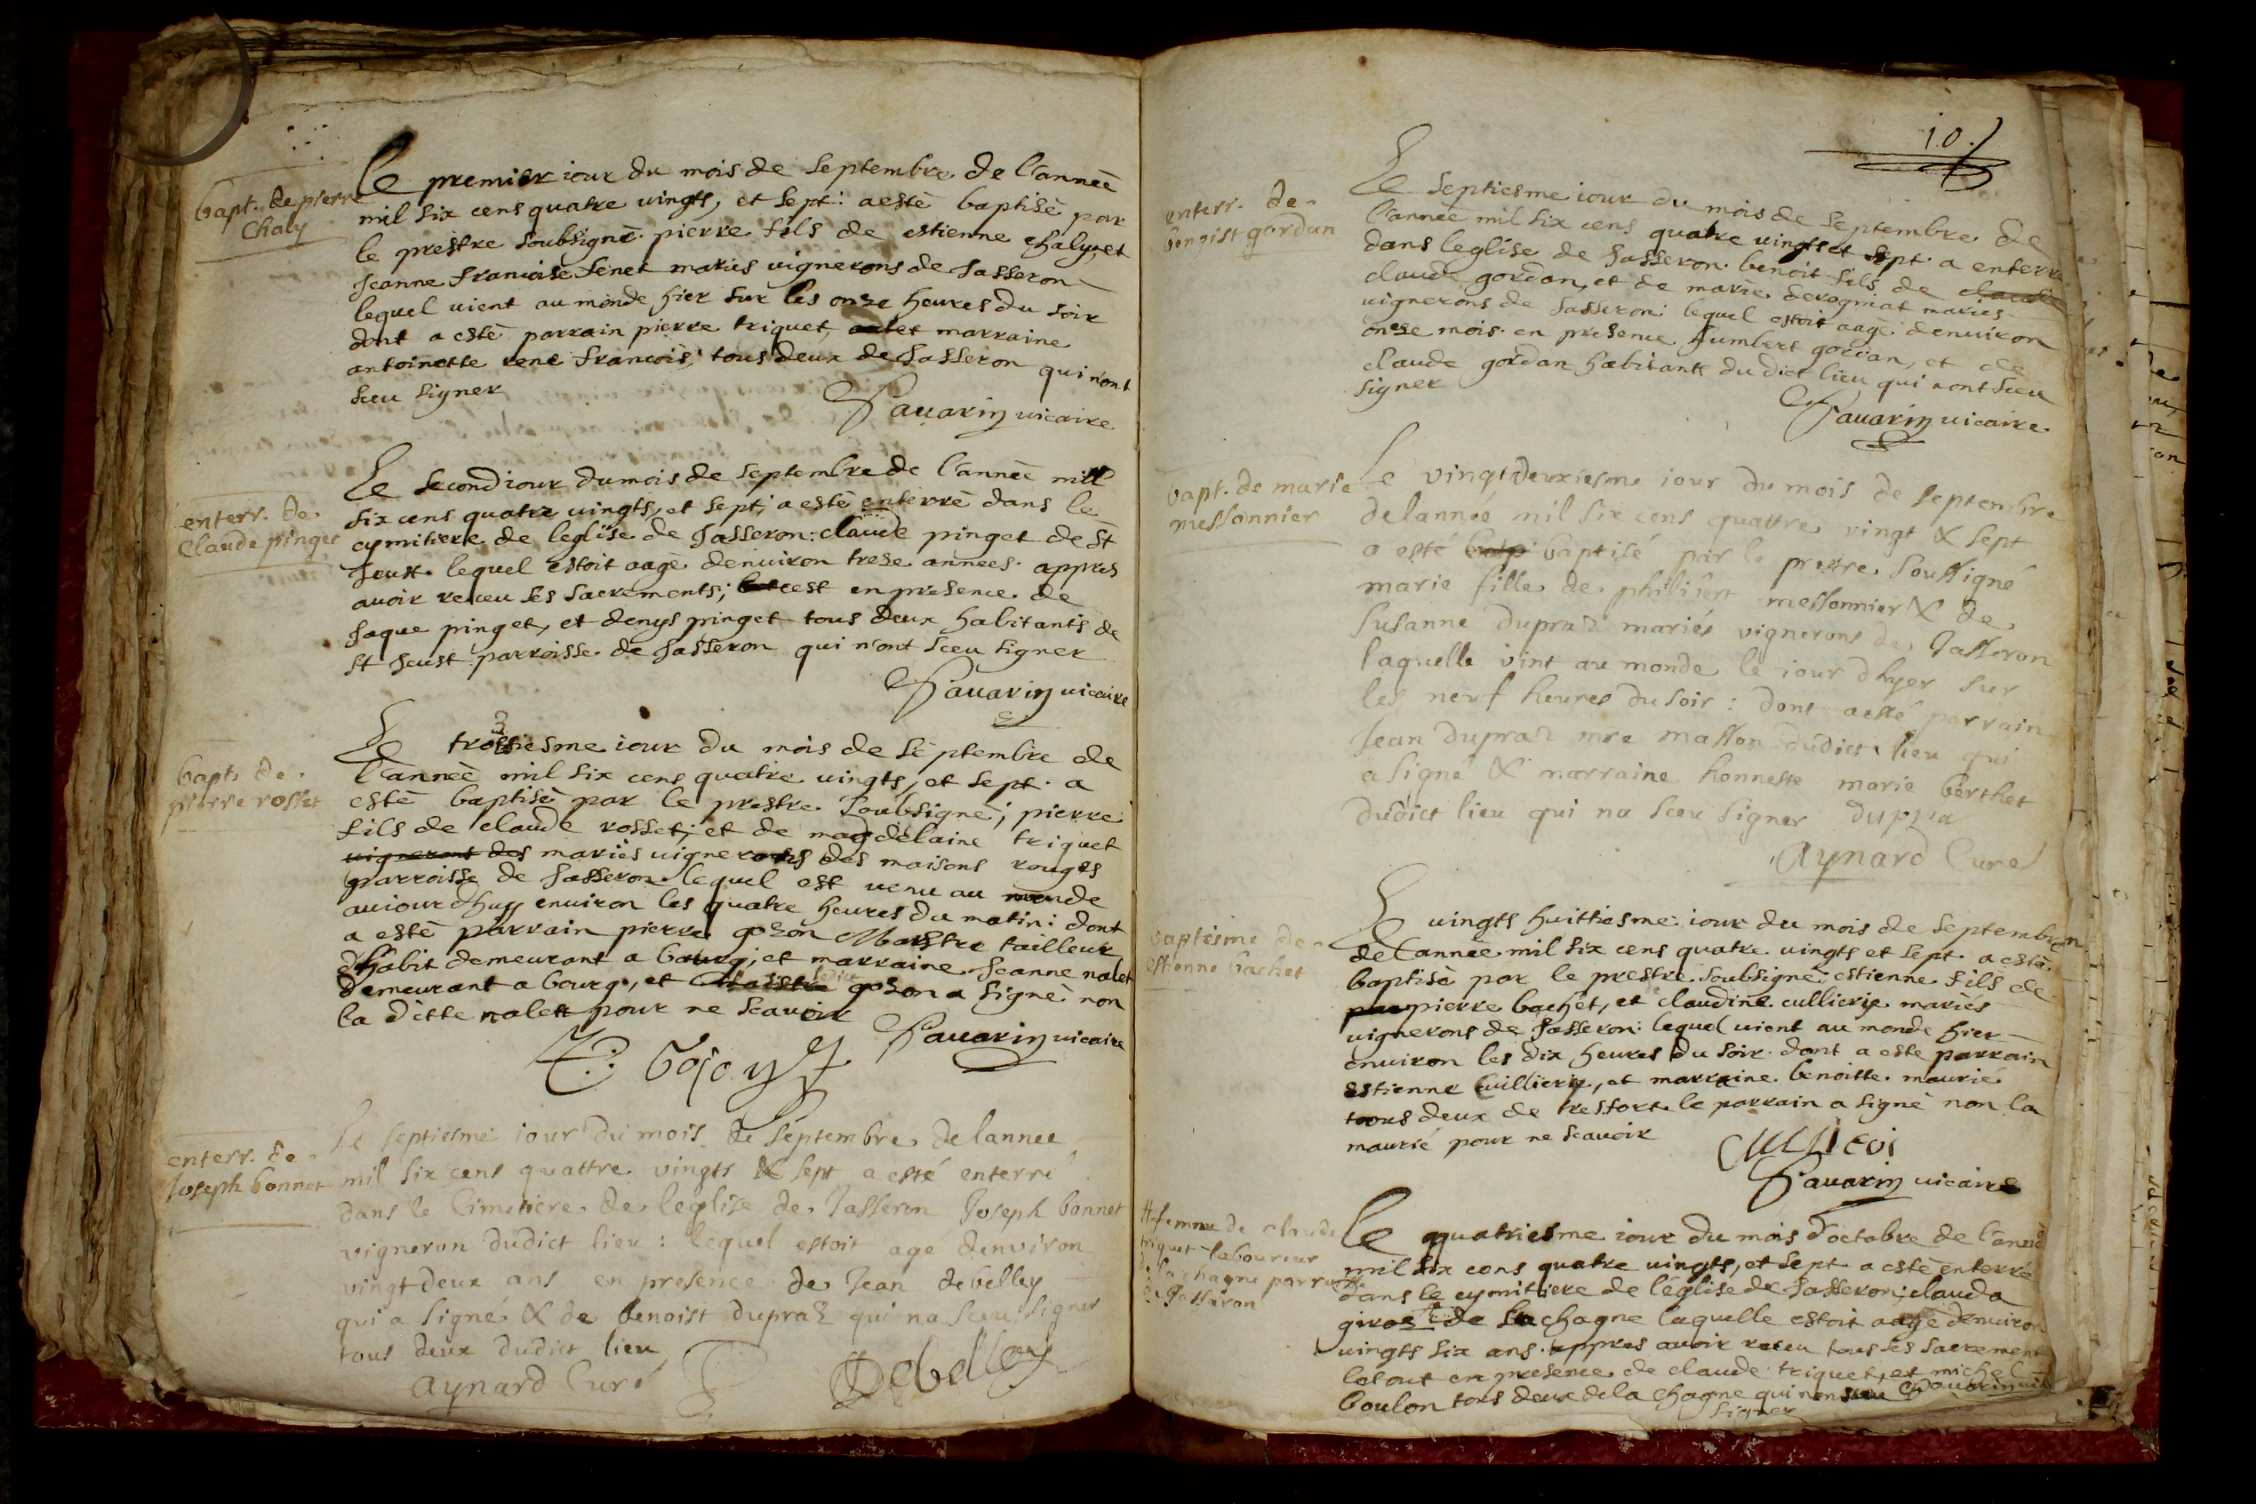 bapt. de pierre
Chaly
Le premier iour du mois de septembre de l'annèe
mil six cens quatre vingts, et sept: a estè baptisè par
le prestre soubsignè pierre fils de estienne chaly, et
Jeanne francoise fenet mariès vignerons de Jasseron
lequel vient au monde hier sur les onze heures du soir
dont a estè parrain pierre triquet, et marraine
antoinette rene francois, tous deux de Jasseron qui n'ont
sceu signer
Pauarin vicaire
enterr. de
Claude pinget
Le second iour du mois de septembre de l'annèe mil
six cens quatre vingts, et sept, a estè enterrè dans le
cymitiere de leglise de Jasseron: claude pinget de St
Jeust. lequel estoit aagè denuiron treze annèes. appres
auoir receu ses sacrements; cest en presence de
Jaque pinget, et denys pinget tous deux habitants de
st Jeust parroisse de Jasseron qui n'ont sceu signer
Pauarin vicaire
bapt. de
pierre rosset
Le troisiesme iour du mois de septembre de
l'annèe mil six cens quatre vingts, et sept. a
estè baptisè par le prestre soubsigné; pierre
fils de claude rosset, et de magdelaine triquet
vigneront des mariès vignerons des maisons rouges
parroisse de Jasseron lequel est venu au monde
auiourdhuy enuiron les quatre heures du matin: dont
a estè parrain pierre gozon Maistre tailleur
d'habit demeurant a bourg, et marraine Jeanne nalet
demeurant a bourg, et Maistre ledict gozon a signè non
la ditte nalett pour ne scauoir
Pauarin vicaire
enterr. de
Joseph bonnet
Le septiesme iour du mois de septembre de lannee
mil six cens quattre vingts & sept a esté enterré
dans le Cimetiere de leglise de Jasseron Joseph bonnet
vigneron dudict lieu: lequel estoit agé denviron
vingt deux ans en presence de Jean debelley
qui a signé & de benoist dupraz qui na sceu signer
tous deux dudict lieu
Aynard Curé
Debelley
10
enterr. de
benoist gordan
Le septiesme iour du mois de septembre de
l'annèe mil six cens quatre vingts et sept. a enterrè
dans leglise de Jasseron benoit fils de claude
claude gordan, et de marie derogmat mariès
vignerons de Jasseron: lequel estoit aagè denuiron
onze mois. en presence humbert gordan, et de
claude gordan habitants du dict lieu qui nont sceu
signer
Pauarin vicaire
bapt. de marie
messonnier
Le vingtdeuxiesme iour du mois de septembre
delannée mil six cens quattre vingt & sept
a esté bap baptisé par le prestre soussigné
marie fille de philibert messonnier & de
Susanne dupraz mariés vignerons de Jasseron
laquelle vint au monde le iour dhyer sur
les neuf heures du soir: dont a esté parrain
Jean dupraz mre masson dudict lieu qui
a signé & marraine honneste marie berthet
dudict lieu qui na sceu signer dupra
Aynard Curé
baptesme de
estienne bachet
Le vingts huittiesme iour du mois de septembre
de l'annèe mil six cens quatre vingts et sept. a estè
baptisè par le prestre soubsignè estienne fils de
pierre bachet, et claudine cullierie mariès
vignerons de Jasseron: lequel vient au monde hier
enuiron les dix heures du soir. dont a este parrain
estienne Cuillierie, et marraine benoitte mauriè
tous deux de tressort. le parrain a signè non la
mauriè pour ne scauoir
Pauarin vicaire
# femme de claude
triquet laboureur
de la chagne parroisse
de Jasseron
Le quatriesme iour du mois d'octobre de l'annèe
mil six cens quatre vingts, et sept a estè enterrè
dans le cymittiere de l'église de Jasseron; clauda
giros # de la chagne laquelle estoit aagè denuiron
vingts six ans. appres auoir receu tous ses sacrements
le tout en presence de claude triquet, et michel
boulon tous deux de la chagne qui nont sceu Pauarin vic
signer